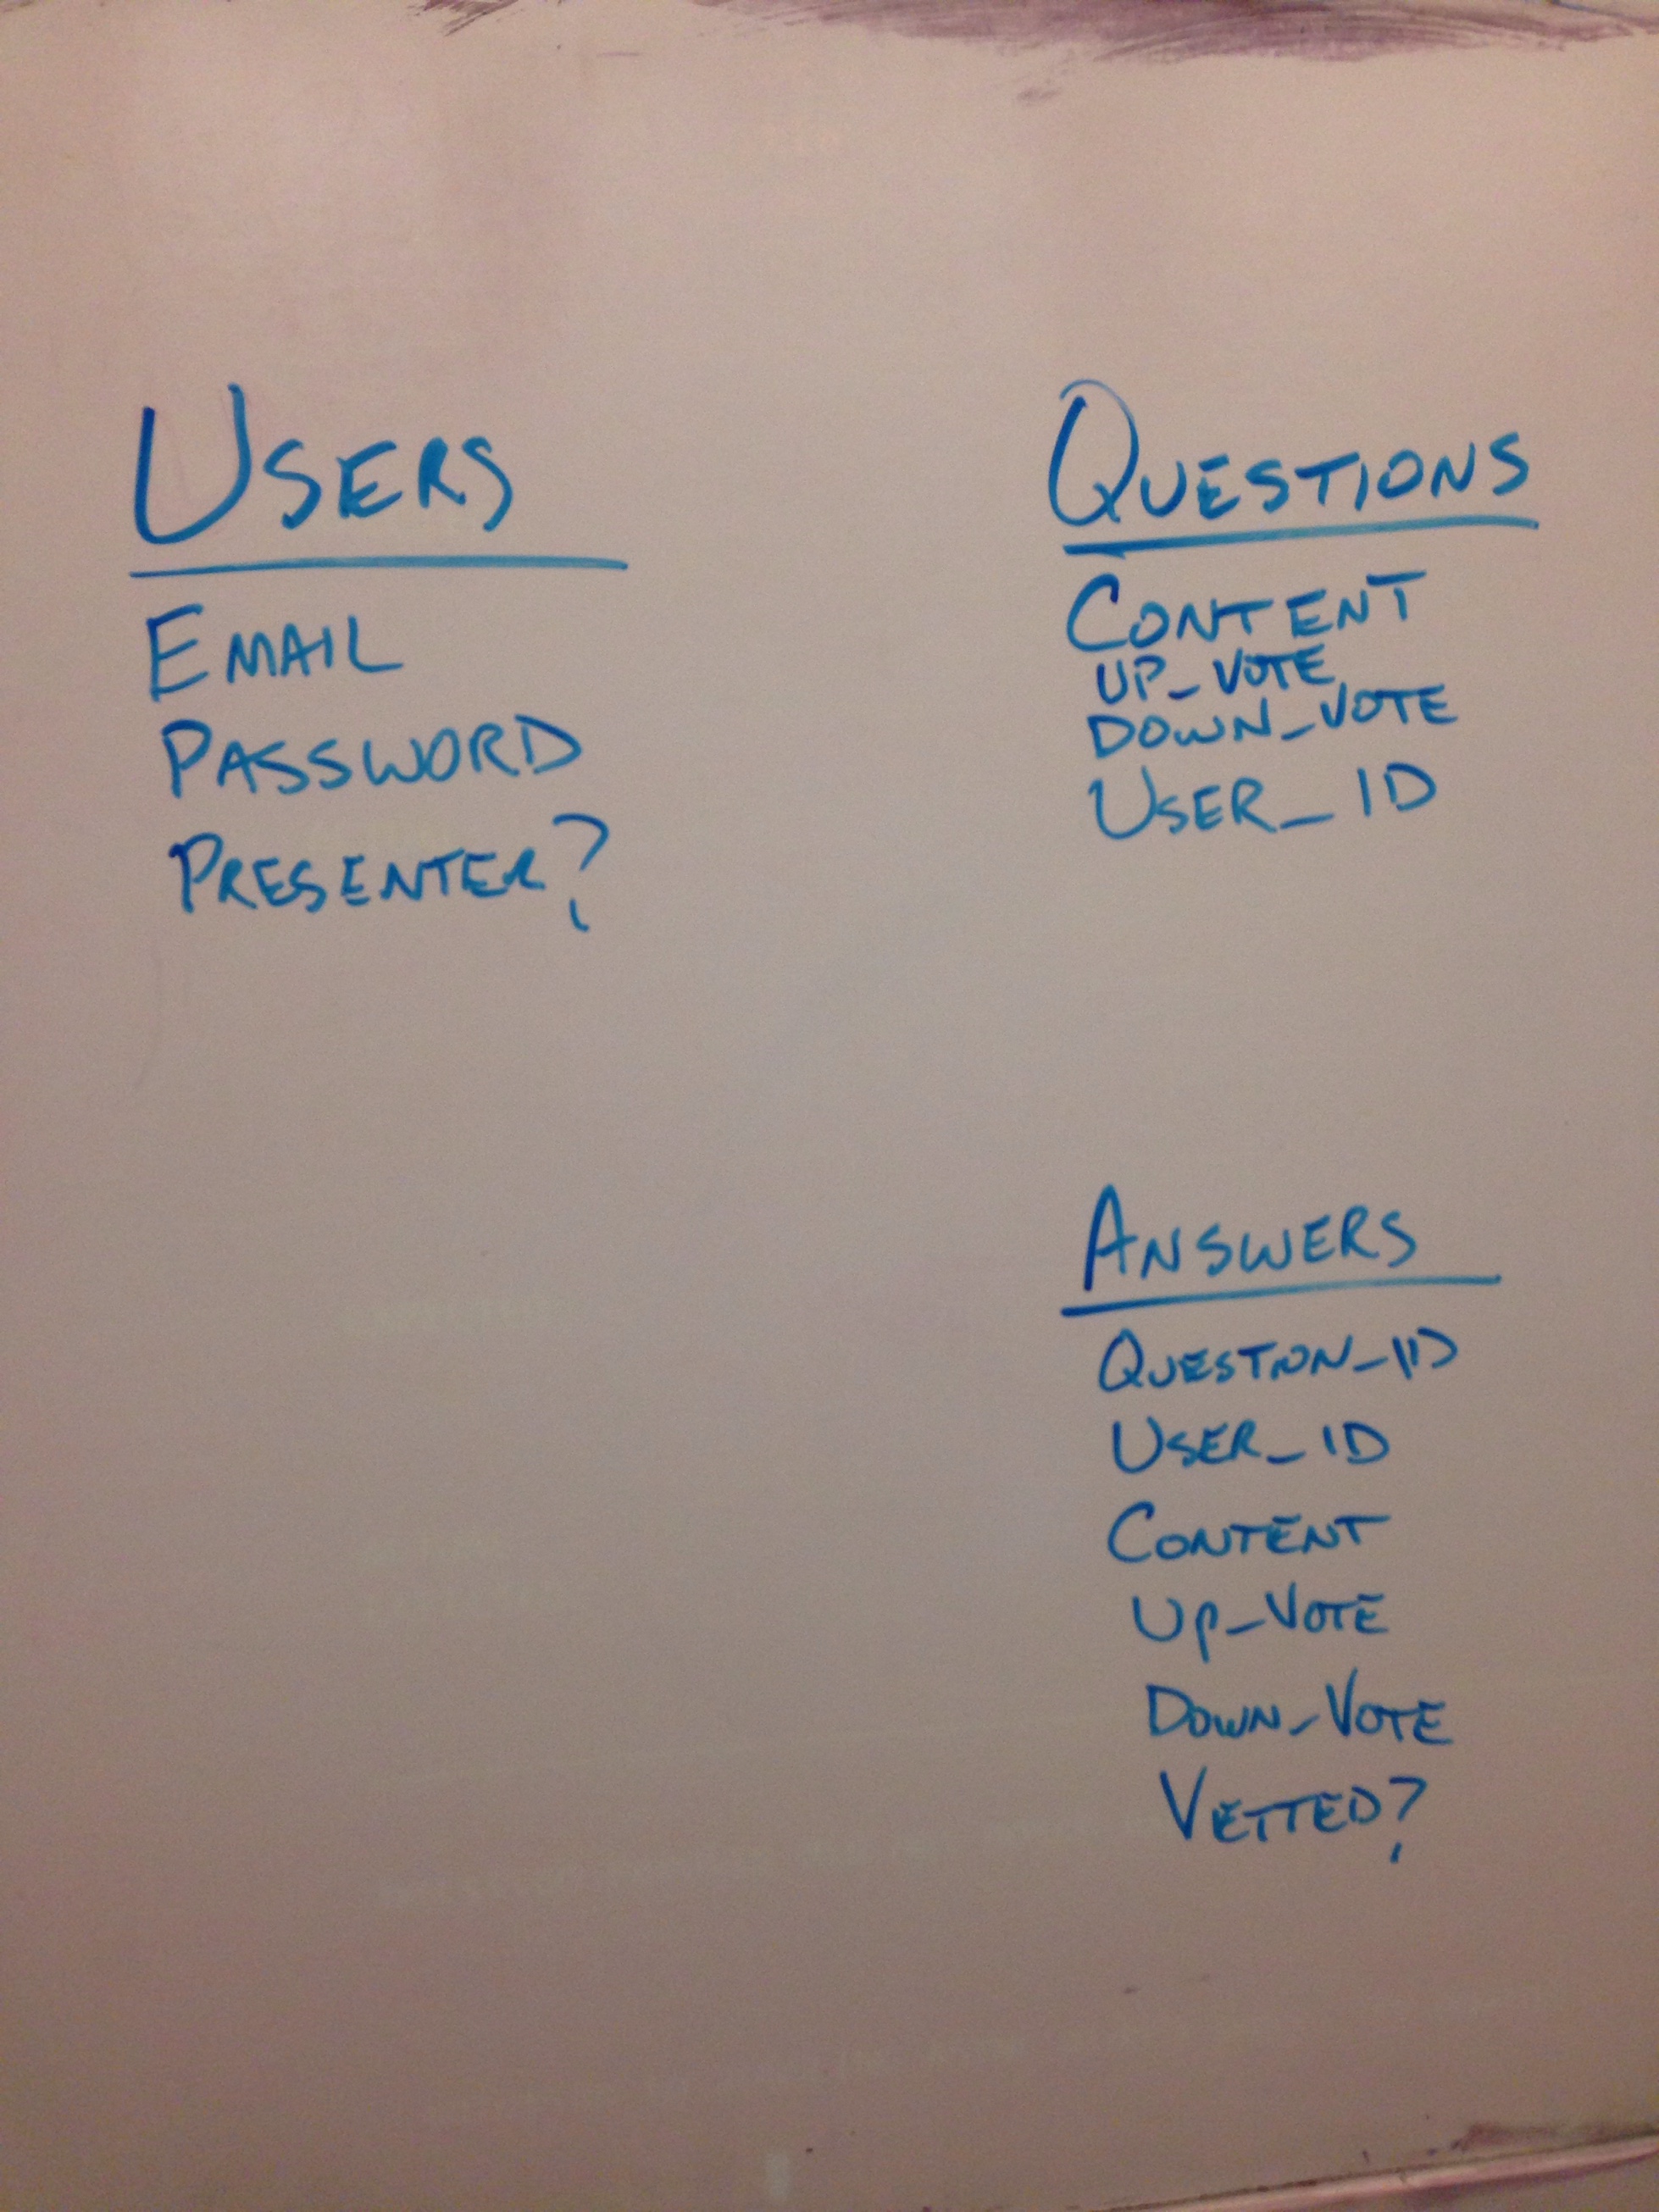 USERS
EMAIL
PASSWORD
PRESENTER?
QUESTIONS
CONTENT
UP_VOTE
DOWN_VOTE
USER_ID
ANSWERS
QUESTION_ID
USER_ID
CONTENT
UP_VOTE
DOWN_VOTE
VETTED?